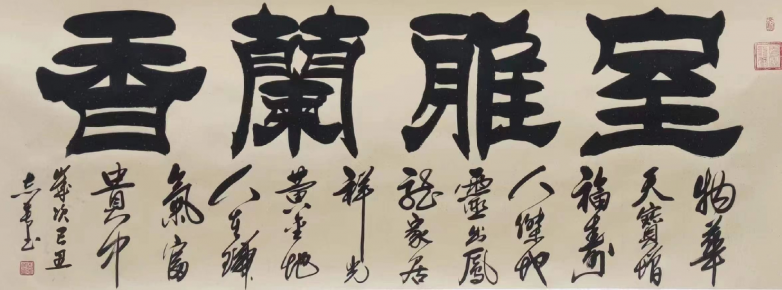 室雅蘭香
物華
天寶增
福壽
人傑地
靈出鳳
龍家居
祥光
黃金地
人在瑞
氣富
貴中
歲次己丑
書